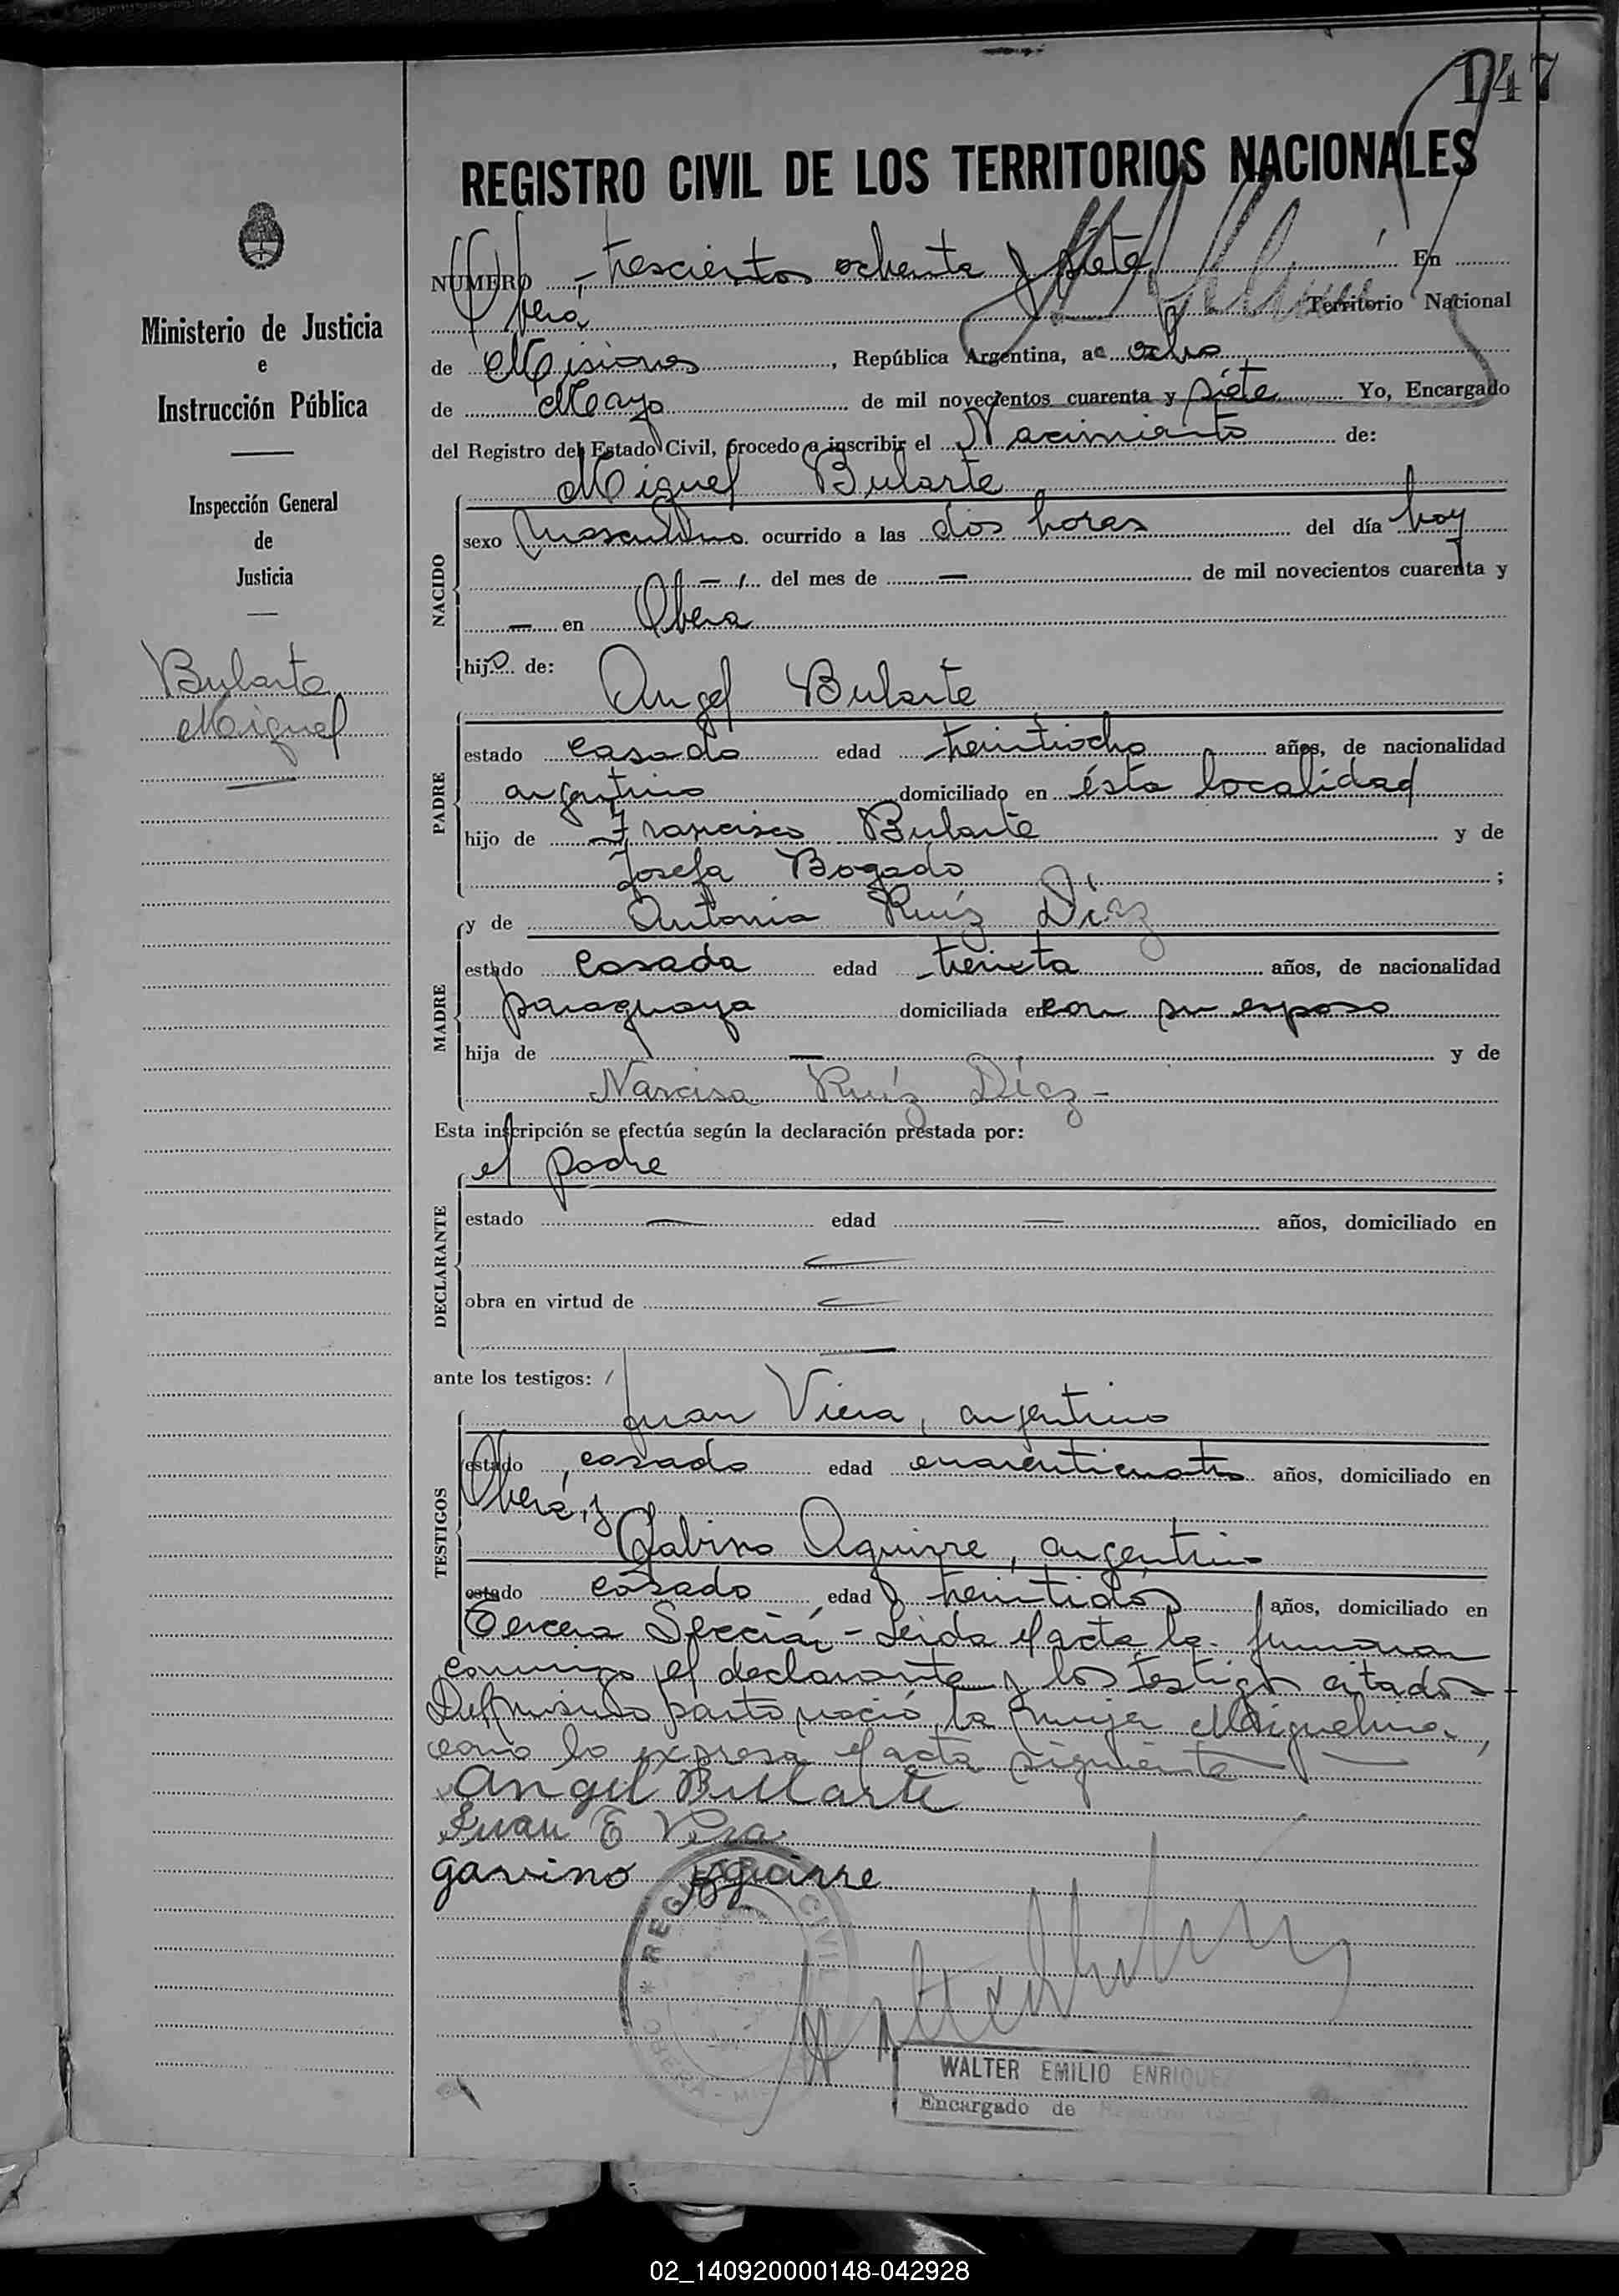 147
REGISTRO CIVIL DE LOS TERRITORIOS NACIONALES
NUMERO - trescientos ochenta y siete En
Oberá Territorio Nacional
de Misiones, República Argentina, a ocho
de Mayo de mil novecientos cuarenta y siete Yo, Encargado
del Registro del Estado Civil, procedo a inscribir el Nacimiento de:
Miguel Bularte
NACIDO
sexo masculino ocurrido a las dos horas del día hoy
- del mes de - de mil novecientos cuarenta y
- en Oberá
hijo de:
Angel Bularte
PADRE
estado casado edad treintiocho años, de nacionalidad
argentino domiciliado en ésta localidad
hijo de Francisco Bularte y de
Josefa Bogado ;
y de Antonia Ruíz Díaz
MADRE
estado casada edad treinta años, de nacionalidad
paraguaya domiciliada en con su esposo
hija de - y de
Narcisa Ruíz Díaz -
Esta inscripción se efectúa según la declaración prestada por:
el padre
DECLARANTE
estado - edad - años, domiciliado en
obra en virtud de -
ante los testigos:
Juan Viera, argentino
TESTIGOS
estado casado edad cuarenticuatro años, domiciliado en
Oberá, y
Gabino Aguirre, argentino
estado casado edad treintidós años, domiciliado en
Tercera Sección - Leída el acta la firmaron
conmigo el declarante y los testigos citados
Del mismo parto nació la mujer Miguelina,
como lo expresa el acta siguiente
Angel Bullarte
Juan E Viera
gavino Aguirre
REGISTRO CIVIL
OBERA - MISIONES
WALTER EMILIO ENRIQUEZ
Encargado de
Ministerio de Justicia
e
Instrucción Pública
Inspección General
de
Justicia
Bularte
Miguel
02_140920000148-042928